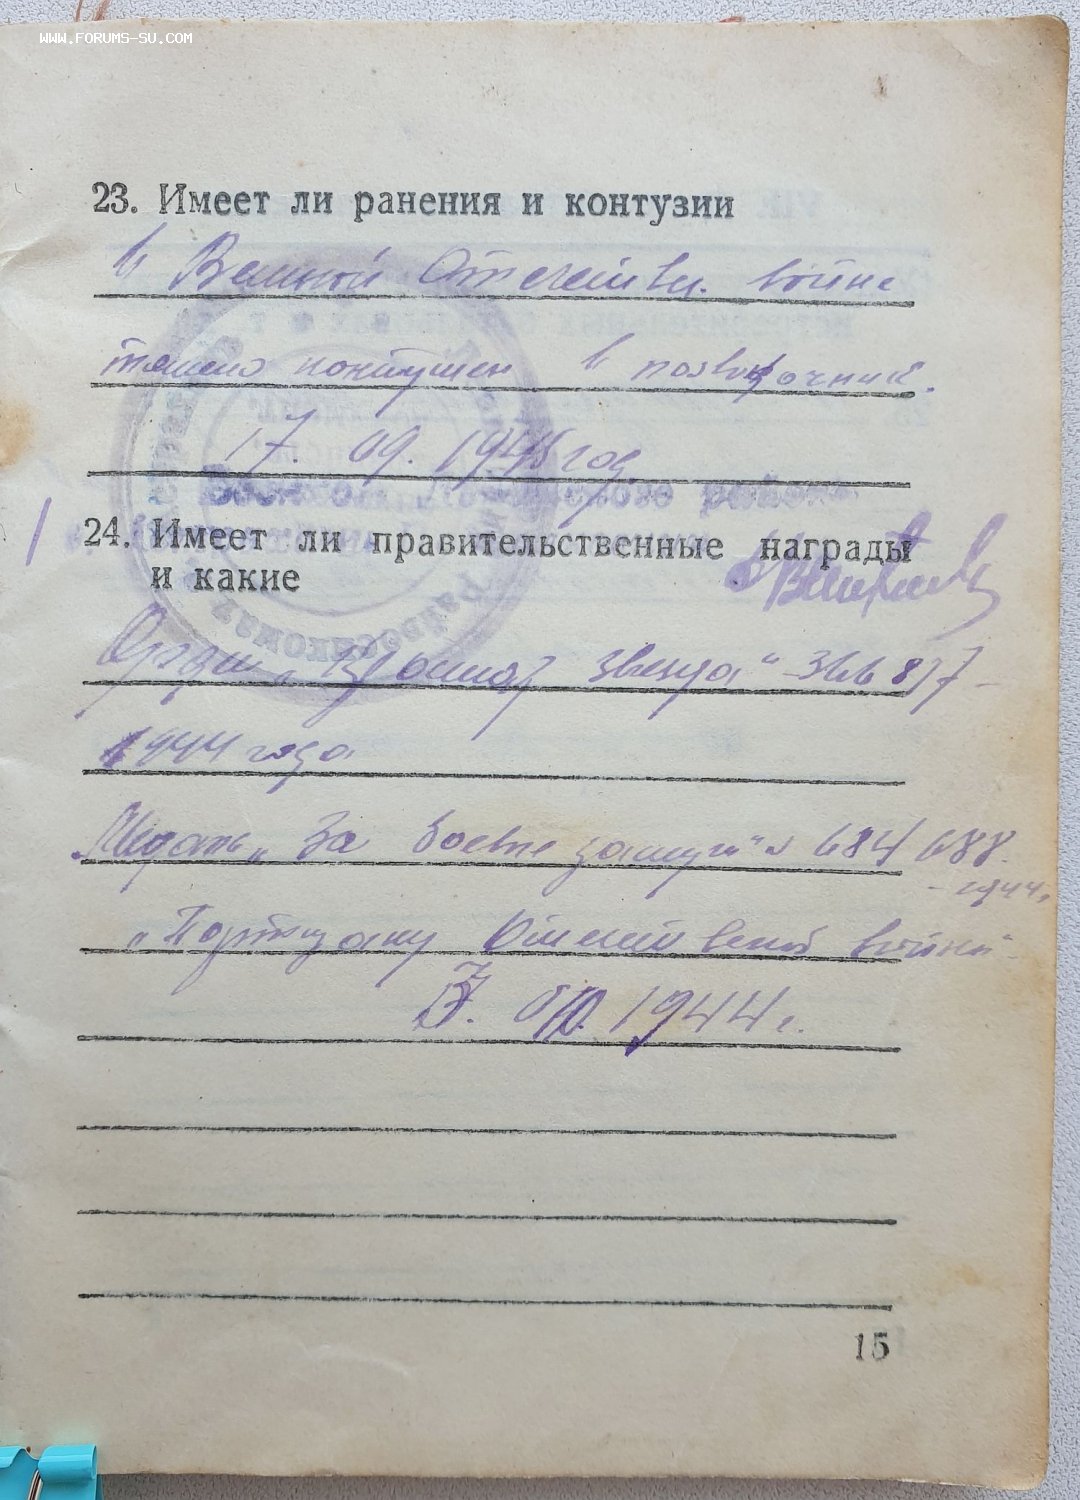 WWW.FORUMS-SU.COM
23. Имеет ли ранения и контузии
в Великой Отечествен. войне
тяжело контужен в позвоночник.
17. 09. 1945 год
24. Имеет ли правительственные награды
и какие
Орден „Красная звезда“ -
1944 года
Медаль „За боевые заслуги“ № 684 688.
- 1944г.
„Партизану Отечественной войны“ -
1944 г.
15